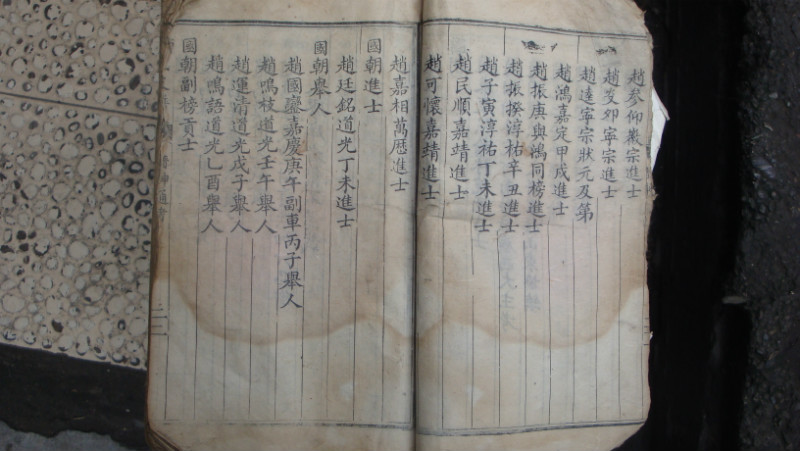 趙参仰徽宗進士
趙㕛卯寜宗進士
趙逵寜宗狀元及第
趙鴻嘉定甲戍進士
趙振庚與鴻同榜進士
趙振揆淳祐辛丑進士
趙子寅淳祐丁未進士
趙民順嘉靖進士
趙可懷嘉靖進士
趙嘉相萬厯進士
國朝進士
趙廷銘道光丁未進士
國朝舉人
趙國鏖嘉慶庚午副車丙子舉人
趙鳴枝道光壬午舉人
趙運清道光戊子舉人
趙鳴語道光乙酉舉人
國朝副榜貢士